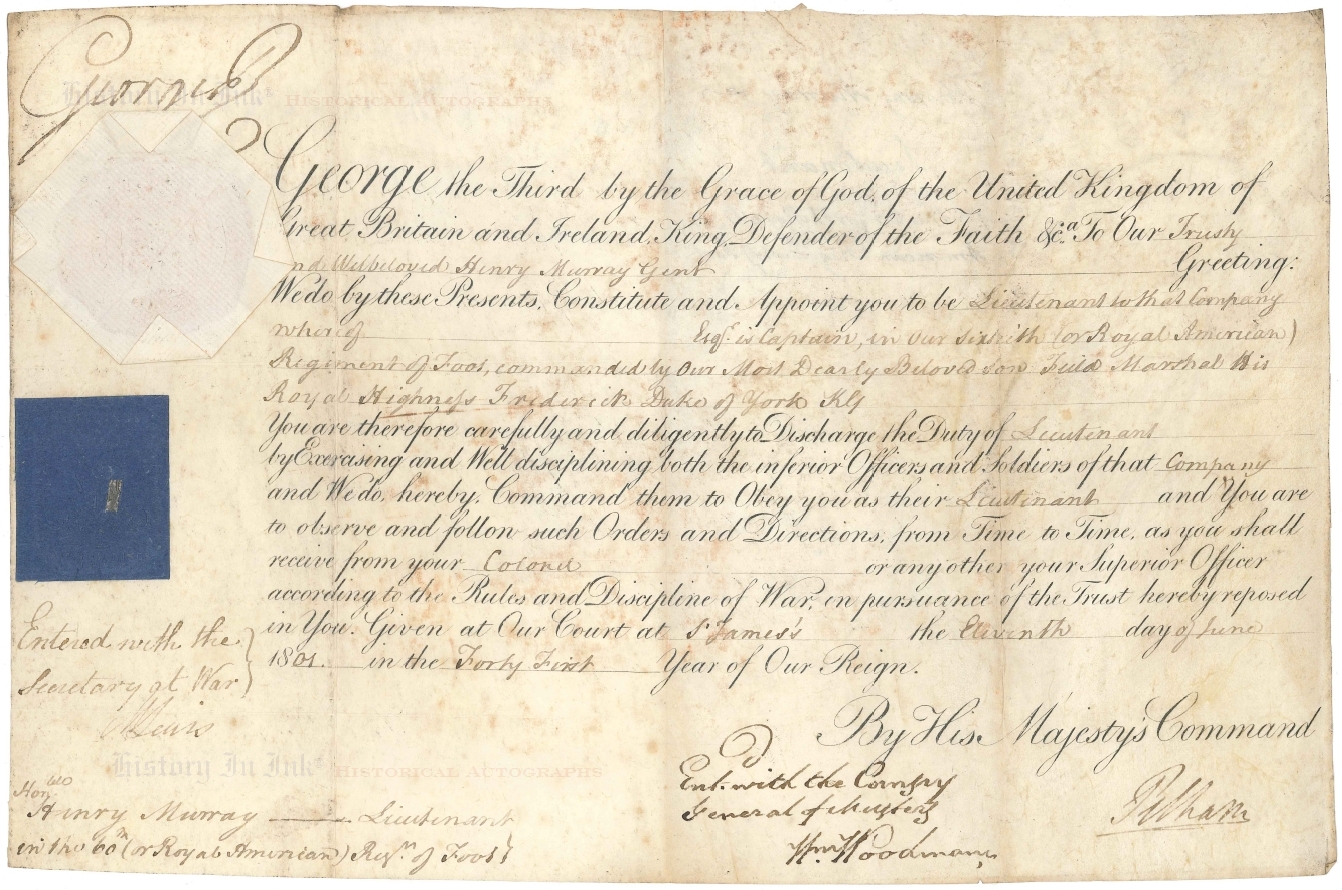 George R
History In Ink® HISTORICAL AUTOGRAPHS
George the Third by the Grace of God, of the United Kingdom of
Great Britain and Ireland, King, Defender of the Faith &c.a To Our Trusty
and Welbeloved Henry Murray Gent Greeting:
We do by these Presents, Constitute and Appoint you to be Lieutenant to that Company
whereof Esqr. is Captain, in our Sixtieth (or Royal American)
Regiment of Foot, commanded by Our Most Dearly Beloved Son Field Marshal His
Royal Highness Frederick Duke of York KG
You are therefore carefully and diligently to Discharge the Duty of Lieutenant
by Exercising and Well disciplining both the inferior Officers and Soldiers of that Company
and We do hereby Command them to Obey you as their Lieutenant and You are
to observe and follow such Orders and Directions, from Time to Time, as you shall
receive from your Colonel or any other your Superior Officer
according to the Rules and Discipline of War, in pursuance of the Trust hereby reposed
in You. Given at Our Court at St James's the Eleventh day of June
1801. in the Forty First Year of Our Reign.
By His Majesty's Command
Pelham
Entered with the
Secretary at War
MLewis
History In Ink® HISTORICAL AUTOGRAPHS
Ent. with the Comsry
General of Musters
Wm Woodman
Honble
Henry Murray Lieutenant
in the 60th (or Royal American) Regt. of Foot